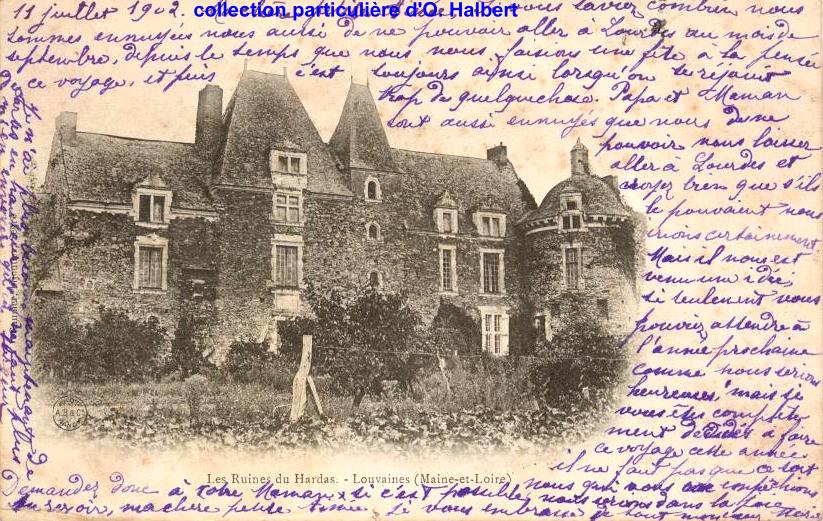 11 juillet 1902.
collection particulière d'O. Halbert
vous saviez combien nous
sommes ennuyées nous aussi de ne pouvoir aller à Lourdes au mois de
septembre, depuis le temps que nous nous faisions une fête à la pensée
de ce voyage, et puis c'est toujours ainsi lorsqu'on se réjouit
trop de quelquechose. Papa et Maman
sont aussi ennuyés que nous de ne
pouvoir nous laisser
aller à Lourdes et
croyez bien que s'ils
le pouvaient nous
irions certainement
Mais il nous est
venu une idée,
si seulement vous
pouviez attendre à
l'année prochaine
comme nous serions
heureuses, mais si
vous êtes complète
ment décidés à faire
ce voyage cette année
il ne faut pas que ce soit
nous qui vous en empêchions
Demandez donc à votre Maman si c'est possible, nous serions dans la joie
au revoir, ma chère petite Je vous embrasse de tout mon cœur
Je n'ai plus maintenant de
A.B. & Cie
Les Ruines du Hardas. - Louvaines (Maine-et-Loire)